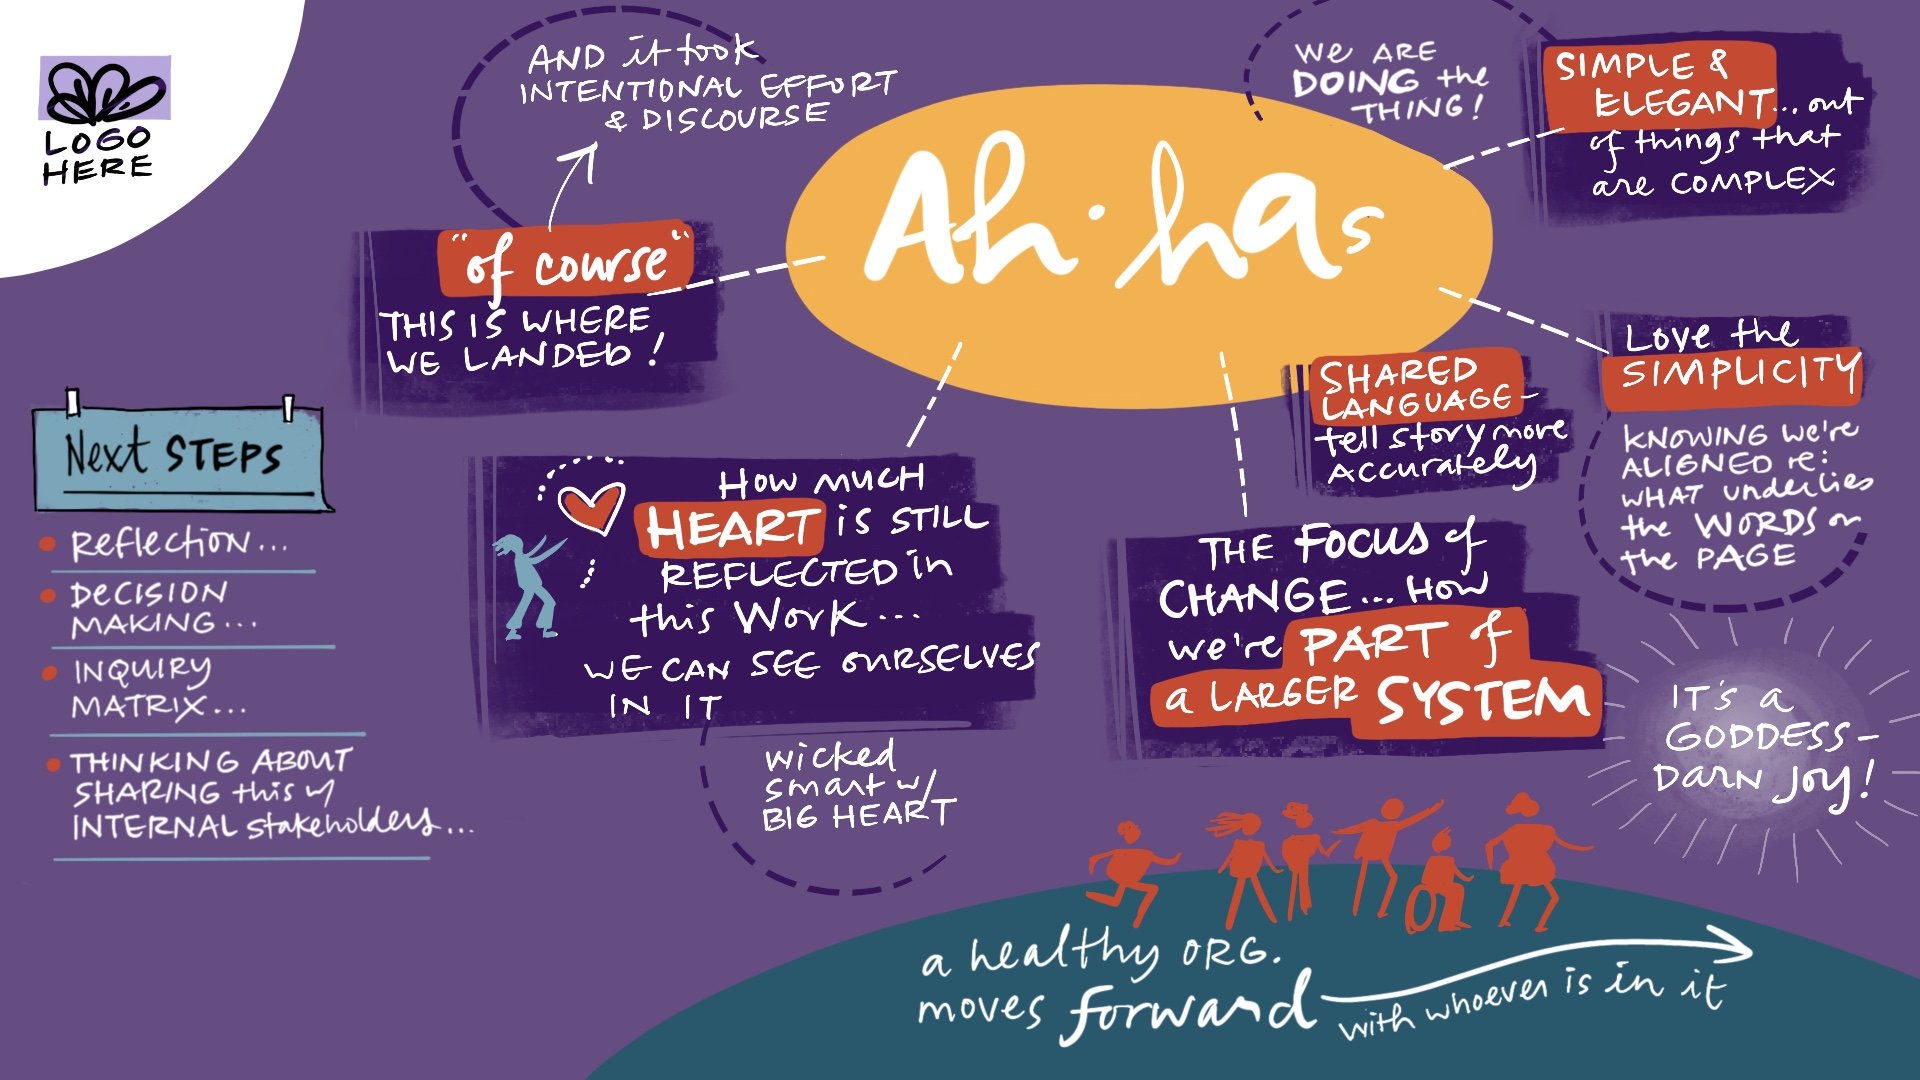 LOGO
HERE
AND it took
INTENTIONAL EFFORT
& DISCOURSE
"of course"
THIS IS WHERE
WE LANDED!
Ah·has
WE ARE
DOING the
THING!
SIMPLE &
ELEGANT...out
of things that
are COMPLEX
LOVE the
SIMPLICITY
KNOWING we're
ALIGNED re:
WHAT underlies
the WORDS on
the PAGE
SHARED
LANGUAGE-
tell story more
ACCURATELY
Next STEPS
Reflection...
DECISION
MAKING...
INQUIRY
MATRIX...
THINKING ABOUT
SHARING this w/
INTERNAL stakeholders...
HOW MUCH
HEART is STILL
REFLECTED in
this WORK...
WE CAN SEE OURSELVES
IN IT
wicked
smart w/
BIG HEART
THE FOCUS of
CHANGE...HOW
we're PART of
a LARGER SYSTEM
IT'S a
GODDESS-
DARN JOY!
a healthy ORG.
moves forward
with whoever is in it